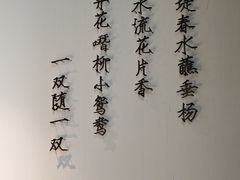 堤春水蘸垂杨
水流花片香
花噆柳小鸳鸯
一双随一双